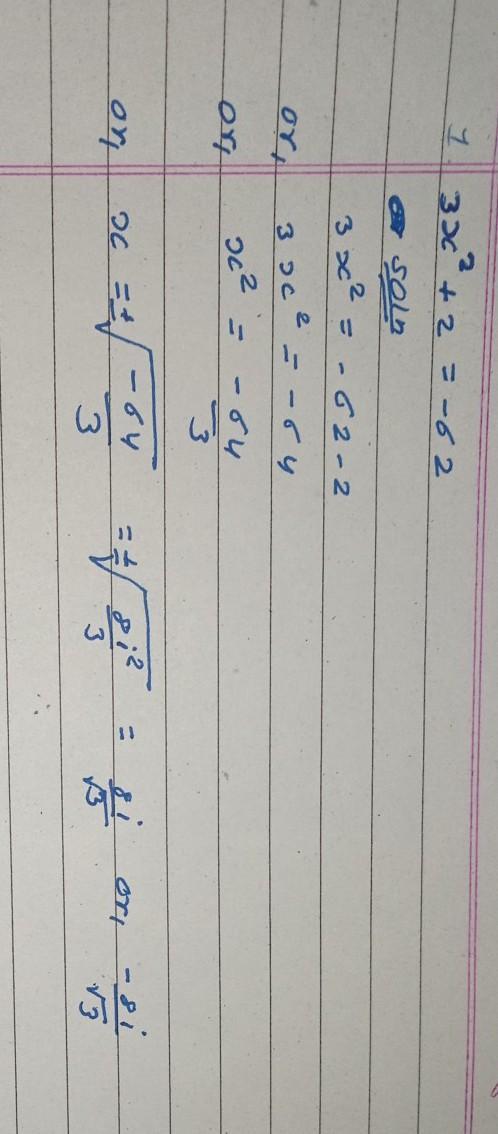 1. 3x² + 2 = -62
soln
3x² = -62-2
or, 3x² = -64
or, x² = -64/3
or, x = ±√(-64/3) = ±√(8i²/3) = 8i/√3 or, -8i/√3